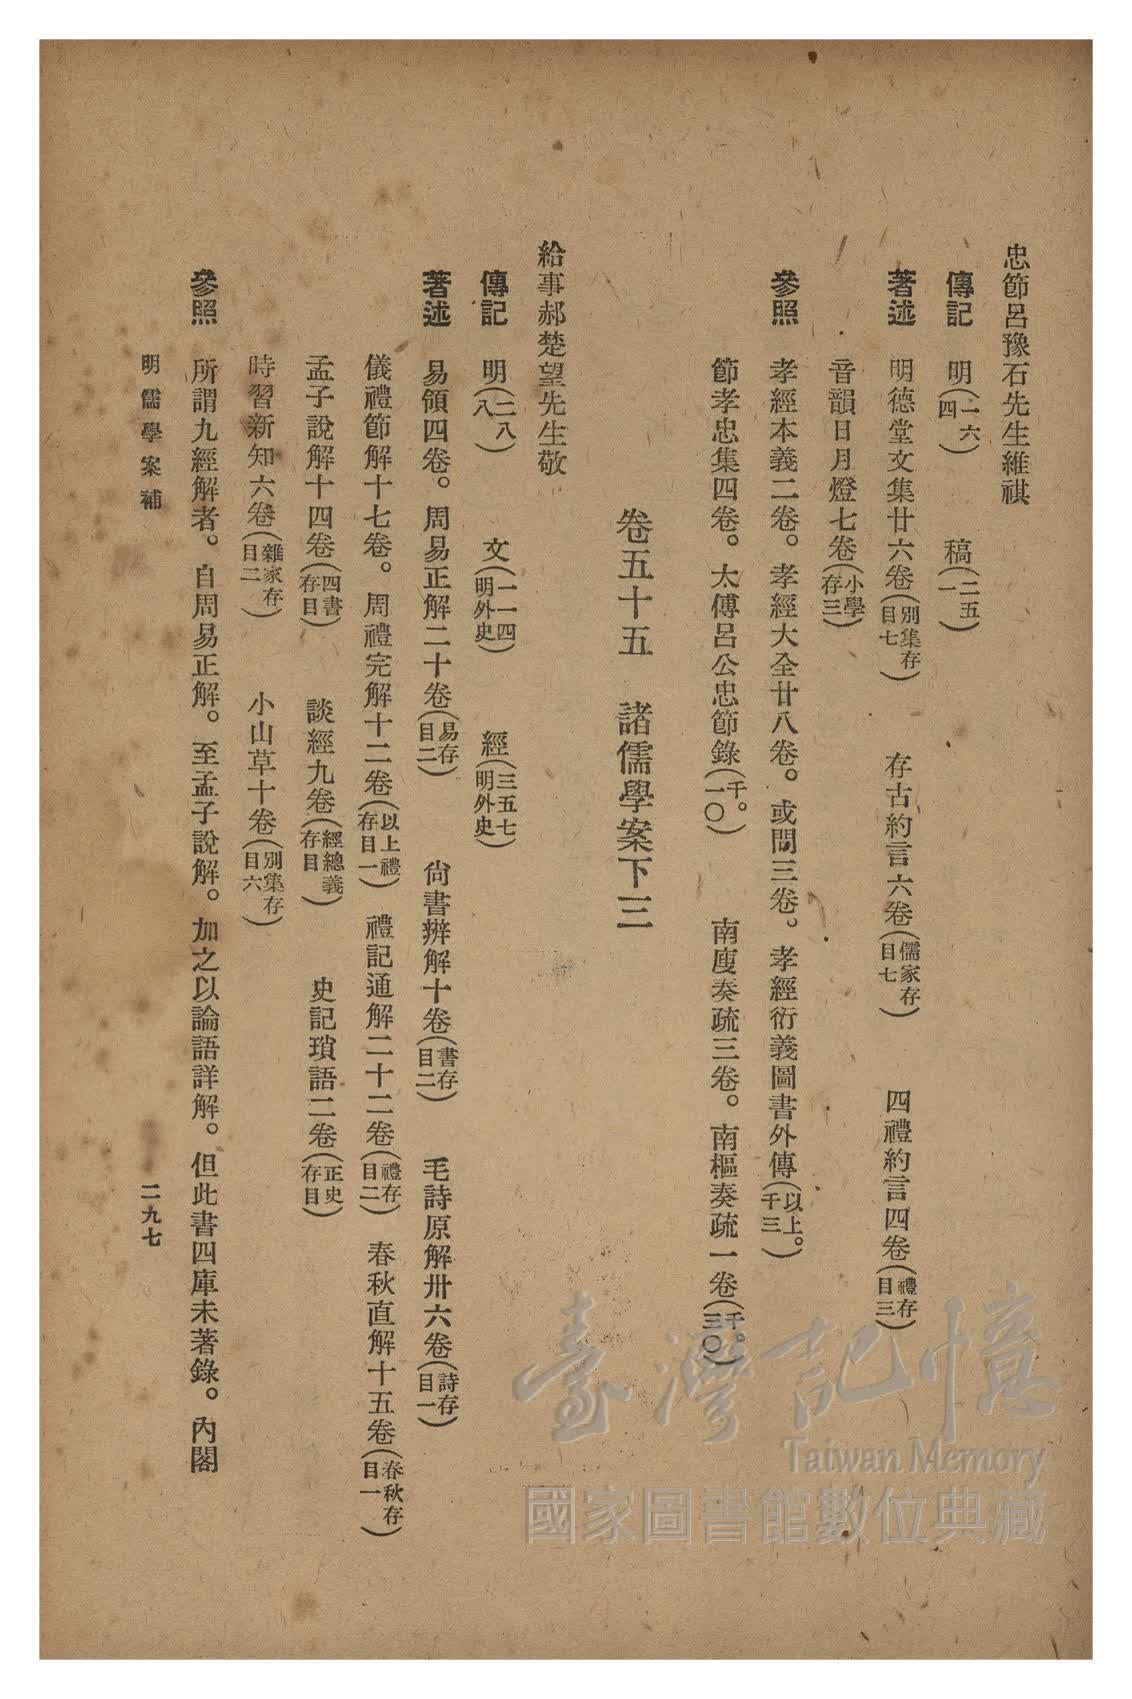 忠節呂豫石先生維祺
傳記　明(二六四)　稿(二五一)
著述　明德堂文集廿六卷(別集存目七)　存古約言六卷(儒家存目七)　四禮約言四卷(禮存目三)
音韻日月燈七卷(小學存三)
參照　孝經本義二卷。孝經大全廿八卷。或問三卷。孝經衍義圖書外傳(以上。千三)
節孝忠集四卷。太傅呂公忠節錄(千。一〇)　南庾奏疏三卷。南樞奏疏一卷(千。三〇)
卷五十五　諸儒學案下三
給事郝楚望先生敬
傳記　明(二八八)　文(一一四明外史)　經(三五七明外史)
著述　易領四卷。周易正解二十卷(易存目二)　尚書辨解十卷(書存目二)　毛詩原解卅六卷(詩存目一)
儀禮節解十七卷。周禮完解十二卷(以上禮存目一)　禮記通解二十二卷(禮存目二)　春秋直解十五卷(春秋存目一)
孟子說解十四卷(四書存目)　談經九卷(經總義存目)　史記瑣語二卷(正史存目)
時習新知六卷(雜家存目二)　小山草十卷(別集存目六)
參照　所謂九經解者。自周易正解。至孟子說解。加之以論語詳解。但此書四庫未著錄。內閣
明儒學案補　二九七
臺灣記憶
Taiwan Memory
國家圖書館數位典藏